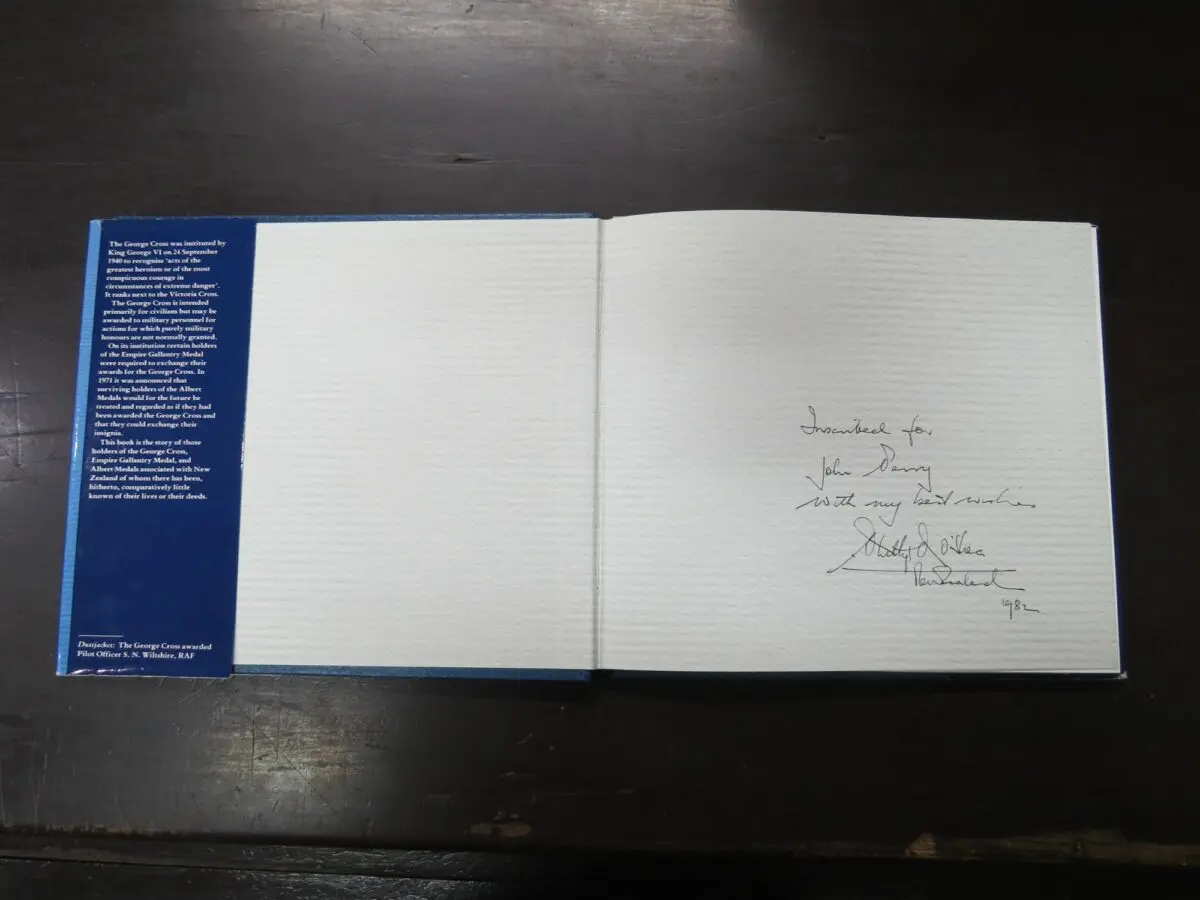 The George Cross was instituted by
King George VI on 24 September
1940 to recognise 'acts of the
greatest heroism or of the most
conspicuous courage in
circumstances of extreme danger'.
It ranks next to the Victoria Cross.
The George Cross is intended
primarily for civilians but may be
awarded to military personnel for
actions for which purely military
honours are not normally granted.
On its institution certain holders
of the Empire Gallantry Medal
were required to exchange their
awards for the George Cross. In
1971 it was announced that
surviving holders of the Albert
Medals would for the future be
treated and regarded as if they had
been awarded the George Cross and
that they could exchange their
insignia.
This book is the story of those
holders of the George Cross,
Empire Gallantry Medal, and
Albert Medals associated with New
Zealand of whom there has been,
hitherto, comparatively little
known of their lives or their deeds.
Dustjacket: The George Cross awarded
Pilot Officer S. N. Wiltshire, RAF
Inscribed for
John
with my best wishes
O'Shea
New Zealand
1982